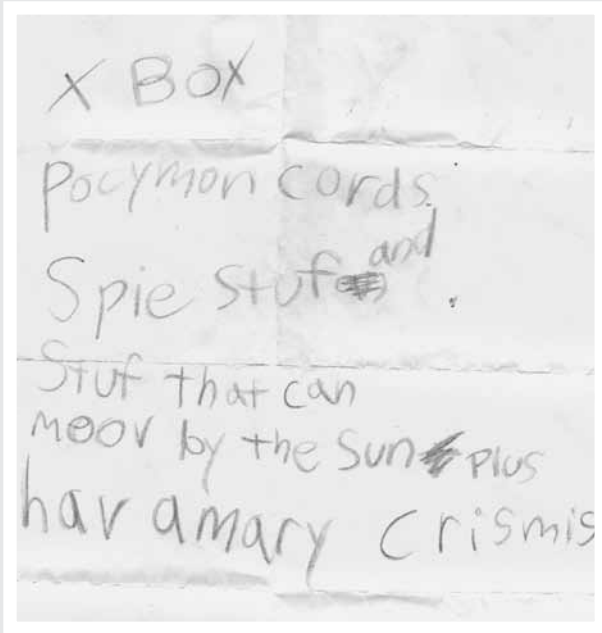 X BOX
Pocymon cords.
Spie stuf and
Stuf that can
moov by the sun plus
hav amary crismis